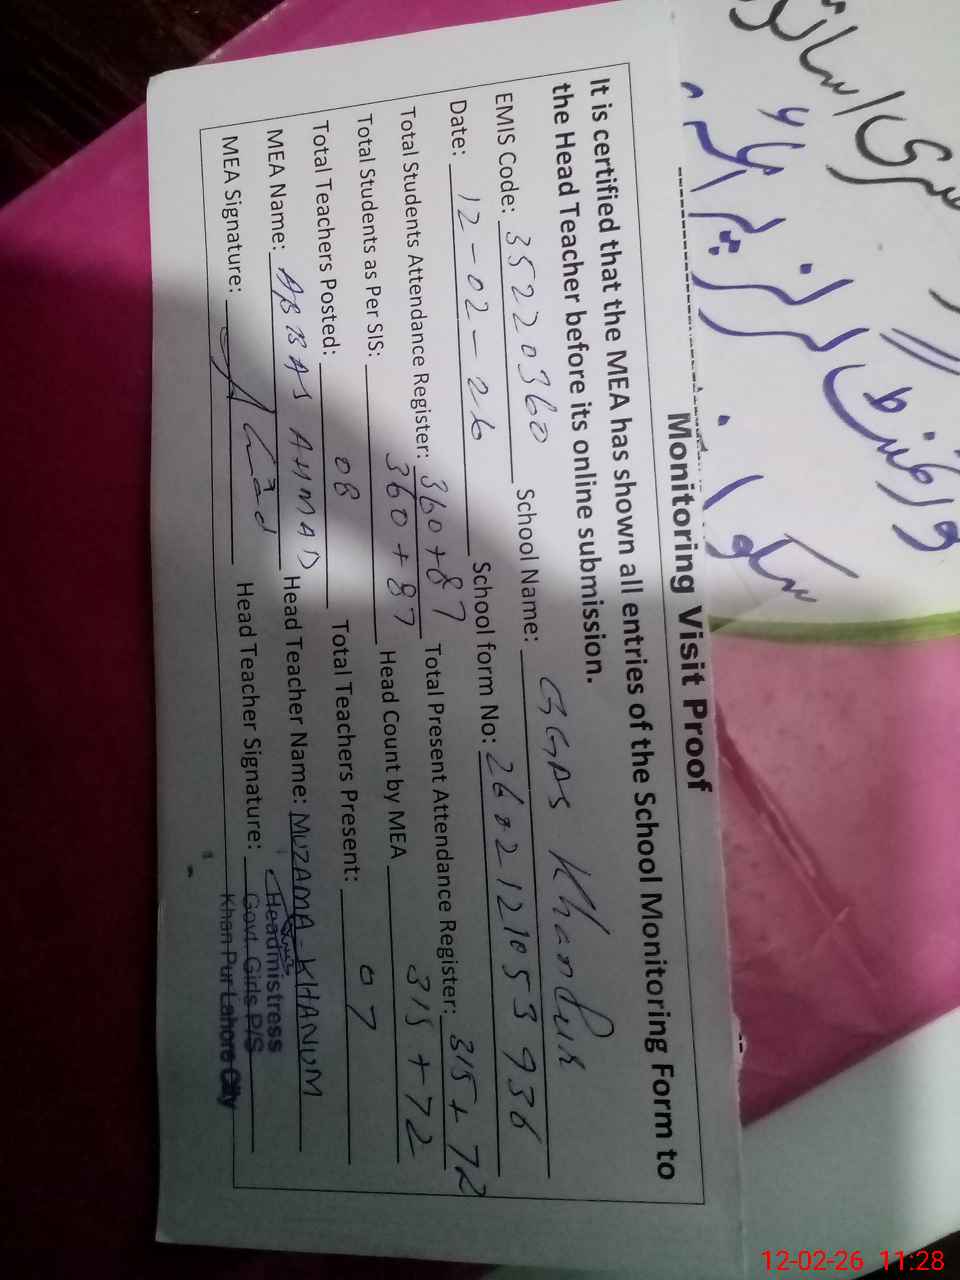 Monitoring Visit Proof
It is certified that the MEA has shown all entries of the School Monitoring Form to
the Head Teacher before its online submission.
EMIS Code: 35220360 School Name: GGPS Khanpur
Date: 12-02-26 School form No: 2602121053936
Total Students Attendance Register: 360+87 Total Present Attendance Register: 315+72
Total Students as Per SIS: 360+87 Head Count by MEA 315+72
Total Teachers Posted: 08 Total Teachers Present: 07
MEA Name: ABBAS AHMAD Head Teacher Name: MUZAMA-KHANUM
MEA Signature: Head Teacher Signature:
Headmistress
Govt. Girls P/S
Khan Pur Lahore City
12-02-26 11:28